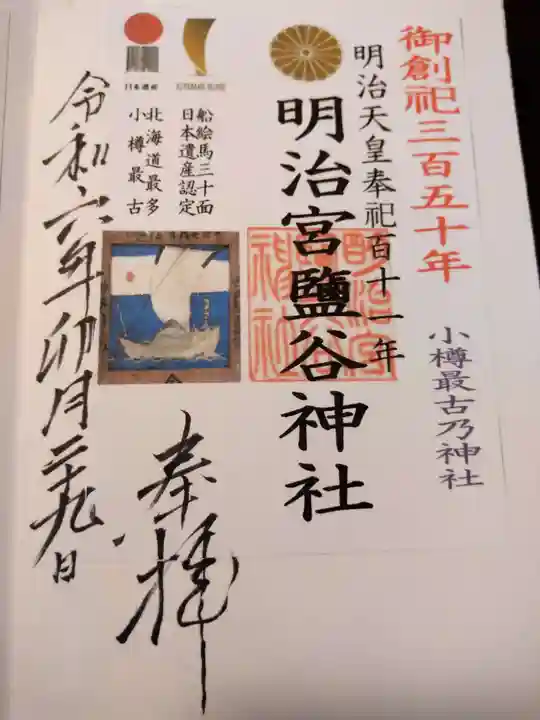 御創祀三百五十年
小樽最古乃神社
明治天皇奉祀百十一年
明治宮鹽谷神社
明治宮鹽谷神社
船絵馬三十面
日本遺産認定
北海道最多
小樽最古
日本遺産
奉拝
令和六年卯月二十九日